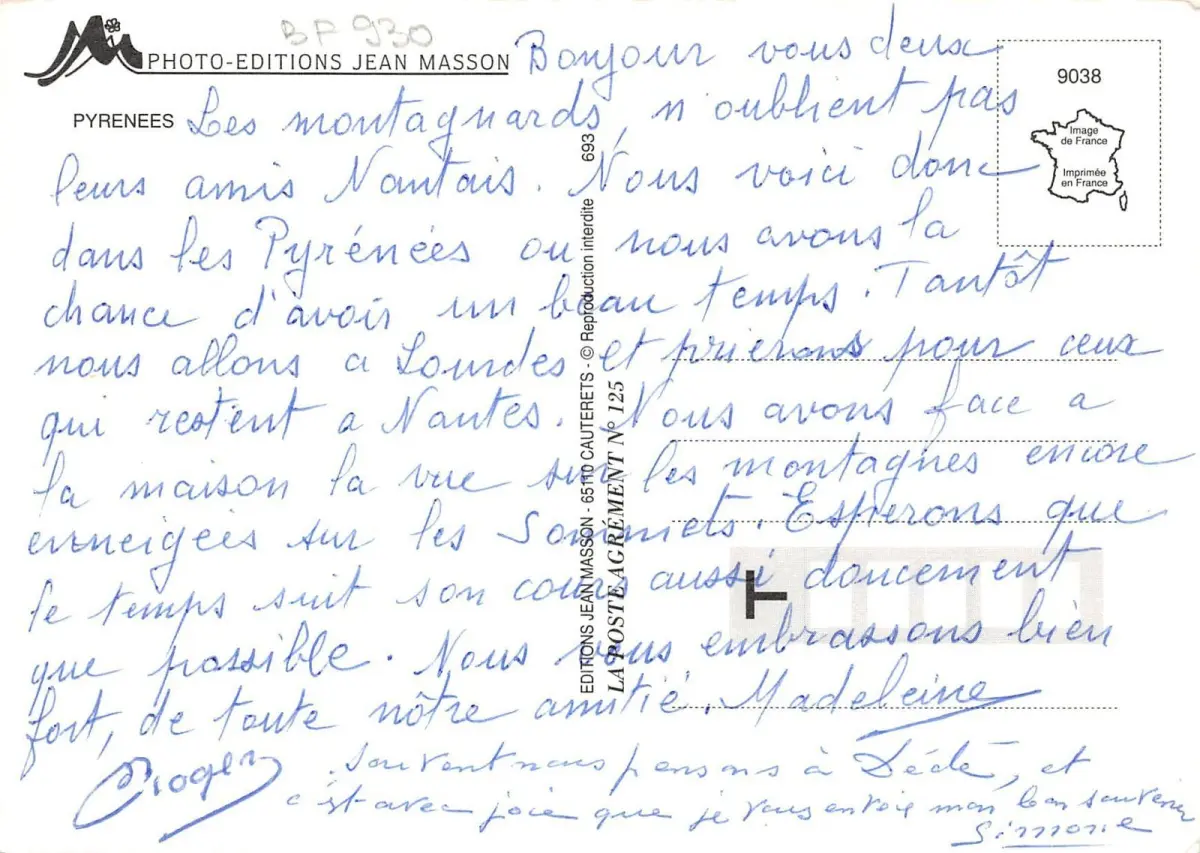 BF 930
PHOTO-EDITIONS JEAN MASSON
PYRENEES
9038
Image
de France
Imprimée
en France
Bonjour vous deux
Les montagnards, n'oublient pas
leurs amis Nantais. Nous voici donc
dans les Pyrénées ou nous avons la
chance d'avoir un beau temps. Tantôt
nous allons a Lourdes et prierons pour ceux
qui restent a Nantes. Nous avons face a
la maison la vue sur les montagnes encore
enneigées sur les Sommets. Esperons que
le temps suit son cours aussi doucement
que possible. Nous vous embrassons bien
fort, de toute nôtre amitié. Madeleine
Roger
souvent nous pensons à Dédé, et
c'est avec joie que je vous envoie mon bon souvenir
Simone
EDITIONS JEAN MASSON - 65110 CAUTERETS - © Reproduction interdite 693
LA POSTE AGRÉMENT N° 125
T